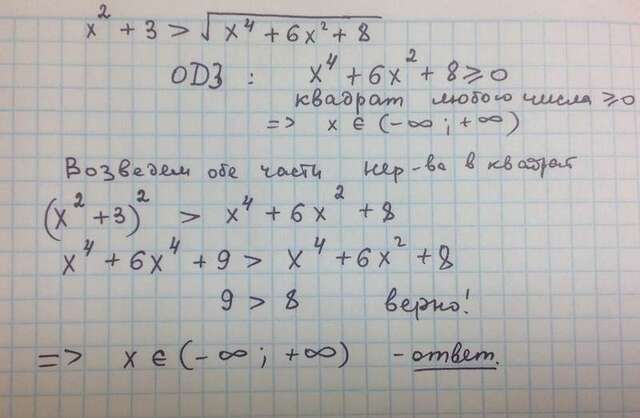 x² + 3 > √(x⁴ + 6x² + 8)
ОДЗ : x⁴ + 6x² + 8 ≥ 0
квадрат любого числа ≥ 0
=> x ∈ (-∞ ; +∞)
Возведем обе части нер-ва в квадрат
(x² + 3)² > x⁴ + 6x² + 8
x⁴ + 6x⁴ + 9 > x⁴ + 6x² + 8
9 > 8 верно!
=> x ∈ (-∞ ; +∞) - ответ.